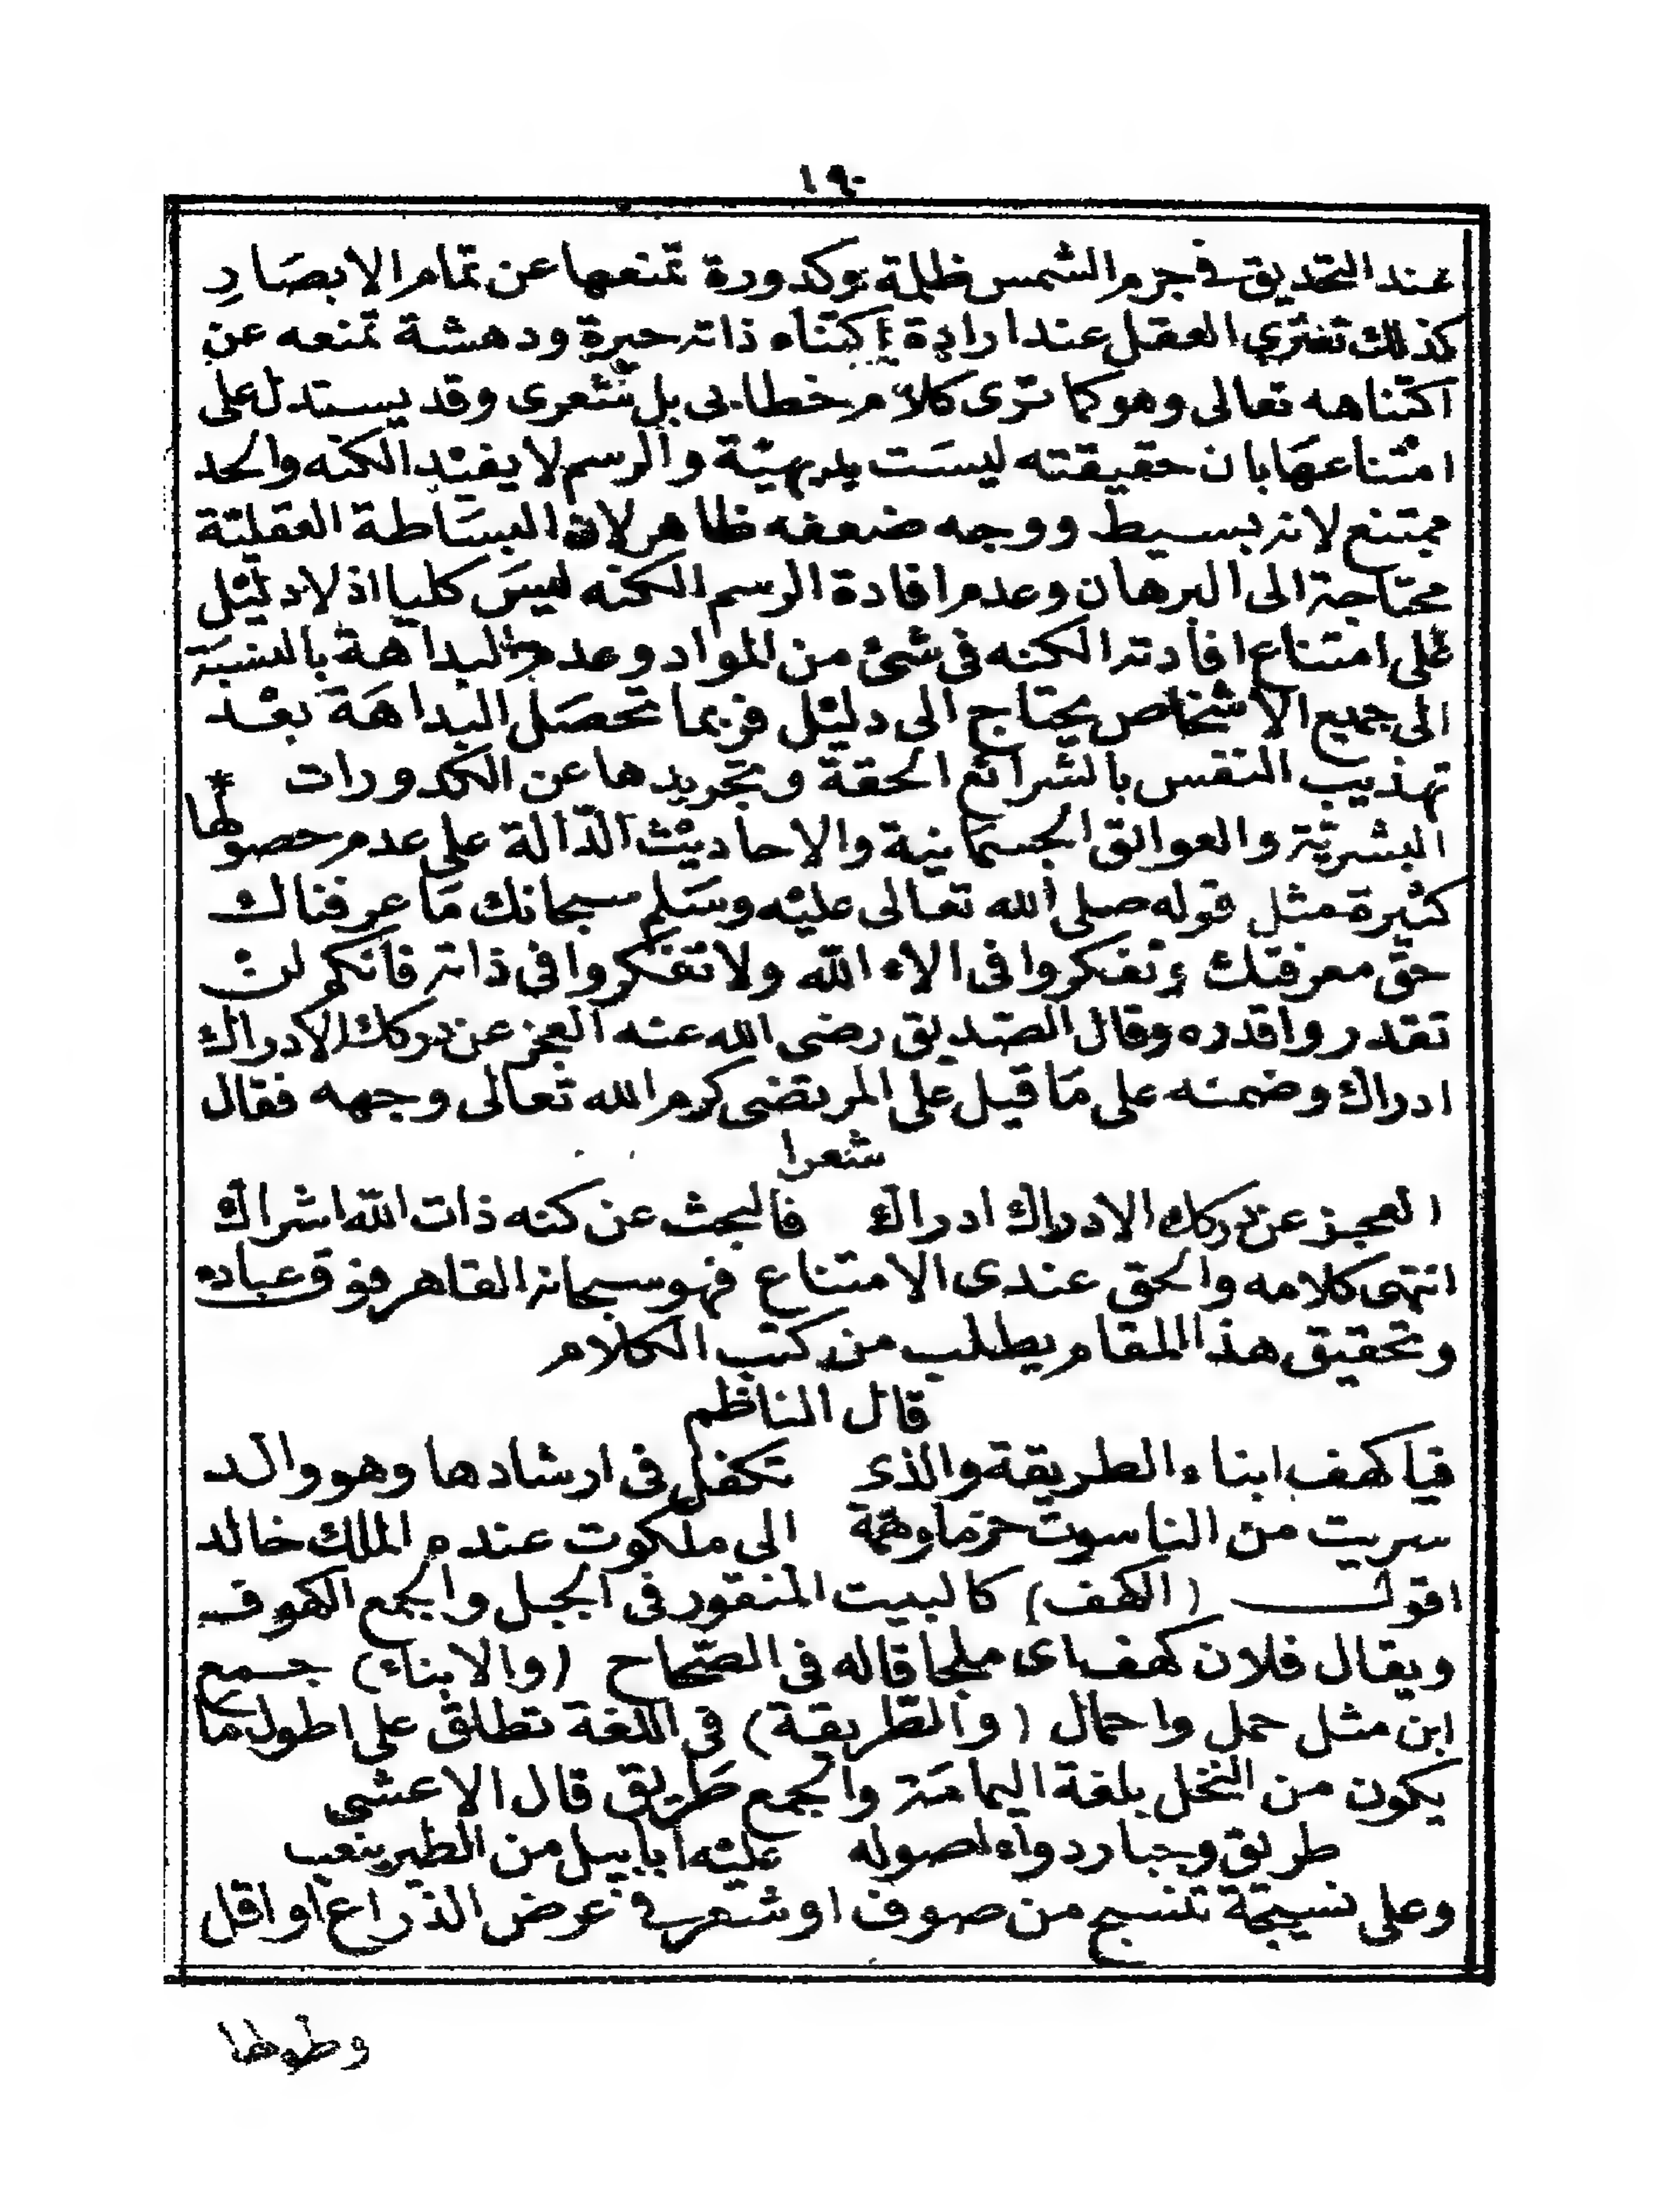 ١٩٠
عند التحديق في جرم الشمس ظلمة وكدورة تمنعها عن تمام الابصَارِ
كذلك تعتري العقل عند ارادة اكتناه ذاته حيرة ودهشة تمنعه عن
اكتناهه تعالى وهو كما ترى كلام خطابى بل شعرى وقد يستدل على
امتناعهَا بان حقيقته ليسَت بديهيّة والرسم لا يفيْد الكنه والحد
ممتنع لانه بسيط ووجه ضعفه ظاهر لان البسَاطة العقليّة
محتاجة الى البرهان وعدم افادة الرسم الكنه ليسَ كليا اذ لا دليْل
على امتناع افادته الكنه فى شئ من المواد وعدم البداهة بالنسبَة
الى جميع الاشخاص يحتاج الى دليْل فربما تحصَل البداهَة بعْد
تهذيب النفس بالشرائع الحقة وتجريدها عن الكدورات *
البشريّة والعوائق الجسمَانية والاحاديْث الدّالة على عدم حصولها
كثيرة مثل قوله صلى الله تعالى عليْه وسَلم سبحانك مَا عرفناك
حق معرفتك وتفكروا فى الاء الله ولا تفكروا فى ذاته فانكم لن
تقدروا قدره وقال الصّديق رضى الله عنه العجز عن درك الادراك
ادراك وضمنه على مَا قيل على المرتضى كرم الله تعالى وجهه فقال
شعرا
العجز عن درك الادراك ادراك فالبحث عن كنه ذات الله اشراك
انتهى كلامه والحق عندى الامتناع فهو سبحانه القاهر فوق عباده
وتحقيق هذا المقام يطلب من كتب الكلام
قال الناظم
فيا كهف ابناء الطريقة والذى تكفل فى ارشادها وهو والد
سريت من الناسوت حزما وهمّة الى ملكوت عنده الملك خالد
اقول (الكهف) كالبيت المنقور فى الجبل والجمع الكهوف
ويقال فلان كهف اى ملجا قاله فى الصّحاح (والابناء) جمع
ابن مثل حمل واحمال (والطّريقة) فى اللغة تطلق على اطول ما
يكون من النخل بلغة اليمامَة والجمع طَريق قال الاعشى
طريق وجبار رواء اصوله عليْه ابابيل من الطير ينعب
وعلى نسيجة تنسج من صوف او شعر في عرض الذراع او اقل
وطولها